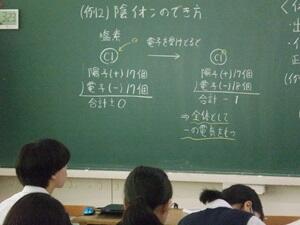 (例2) 陰イオンのでき方
塩素
電子を受けとって
Cl → Cl
陽子(+)17個
)電子(-)17個
合計±0
陽子(+)17個
)電子(-)18個
合計 -1
⇒全体として
-の電気をもつ